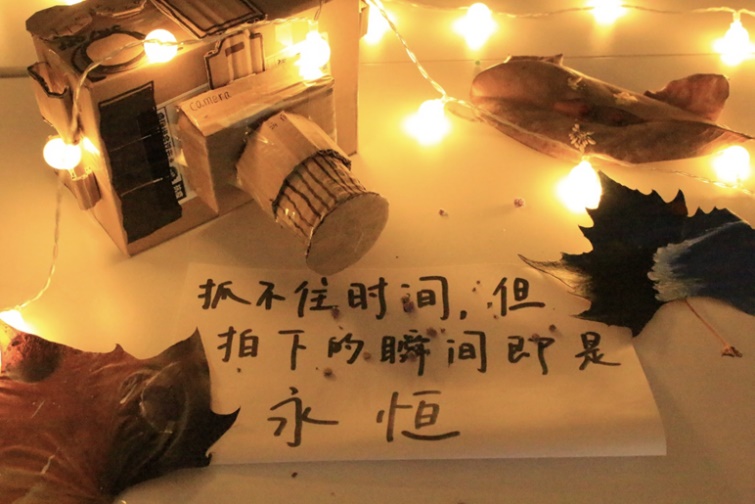 camera
抓不住时间，但
拍下的瞬间即是
永恒